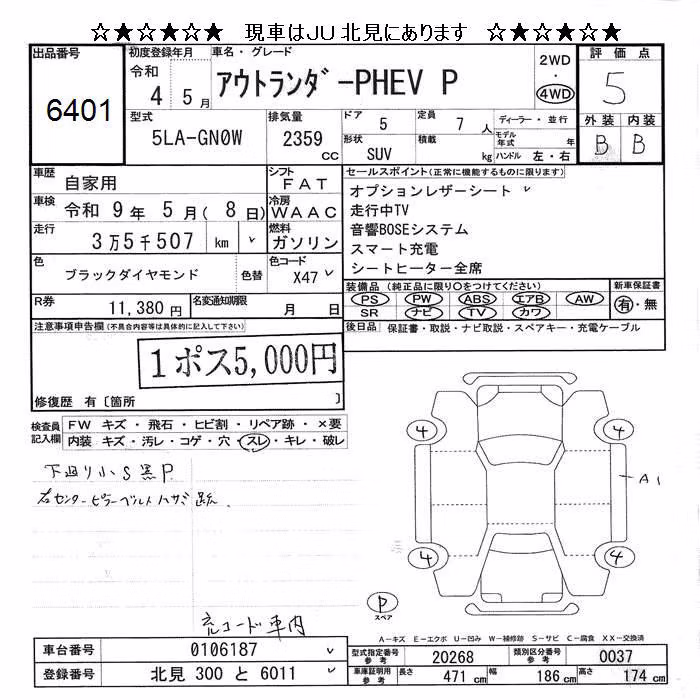 ☆★☆★☆★ 現車はJU北見にあります ☆★☆★☆★
出品番号 6401
初度登録年月 令和 4 5月
車名・グレード アウトランダ゛-PHEV P
2WD ・ 4WD
評価点 5
型式 5LA-GN0W
排気量 2359 cc
ドア 5
定員 7 人
形状 SUV
積載 kg
ディーラー・並行
モデル年式 年
ハンドル 左・右
外装 B 内装 B
車歴 自家用
シフト FAT
車検 令和 9年 5月( 8日)
冷房 WAAC
走行 3万5千507 km ✓
燃料 ガソリン
色 ブラックダイヤモンド 色替
色コード X47 ✓
R券 11,380円
名変通知期限 月 日
セールスポイント(正常に機能するものに限ります)
オプションレザーシート ✓
走行中TV
音響BOSEシステム
スマート充電
シートヒーター全席
装備品(純正品に限り○をつけてください)
PS PW ABS エアB AW
SR ナビ TV カワ
新車保証書 有・無
後日品 保証書・取説・ナビ取説・スペアキー・充電ケーブル
注意事項申告欄(不具合内容等は具体的に記入して下さい)
1ポス5,000円
修復歴 有〔箇所 〕
検査員記入欄
FW キズ・飛石・ヒビ割・リペア跡・×要
内装 キズ・汚レ・コゲ・穴・スレ・キレ・破レ
下廻り小S黒P
右センターピラーベルトハサミ跡.
充コード車内
4 4
A1
4 4
P
スペア
A-キズ E-エクボ U-凹み W-補修跡 S-サビ C-腐食 XX-交換済
車台番号 0106187 ✓
登録番号 北見 300 と 6011 ✓
型式指定番号 参考 20268
類別区分番号 参考 0037
車庫証明用 参考 長さ 471 cm 幅 186 cm 高さ 174 cm